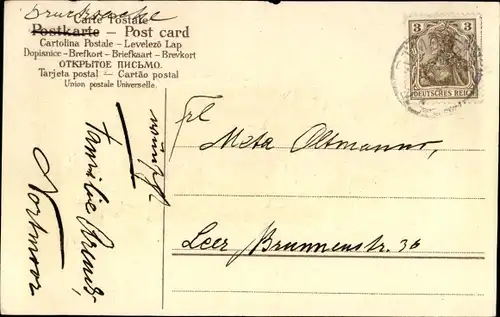 Drucksache
Carte Postale
Postkarte – Post card
Cartolina Postale – Levelező Lap
Dopisnice – Brefkort – Briefkaart – Brevkort
ОТКРЫТОЕ ПИСЬМО.
Tarjeta postal – Cartão postal
Union postale Universelle.
3 3
DEUTSCHES REICH
Frl
Meta Oltmanns,
Leer Brunnenstr. 36
wünscht
Familie
Nortmoor